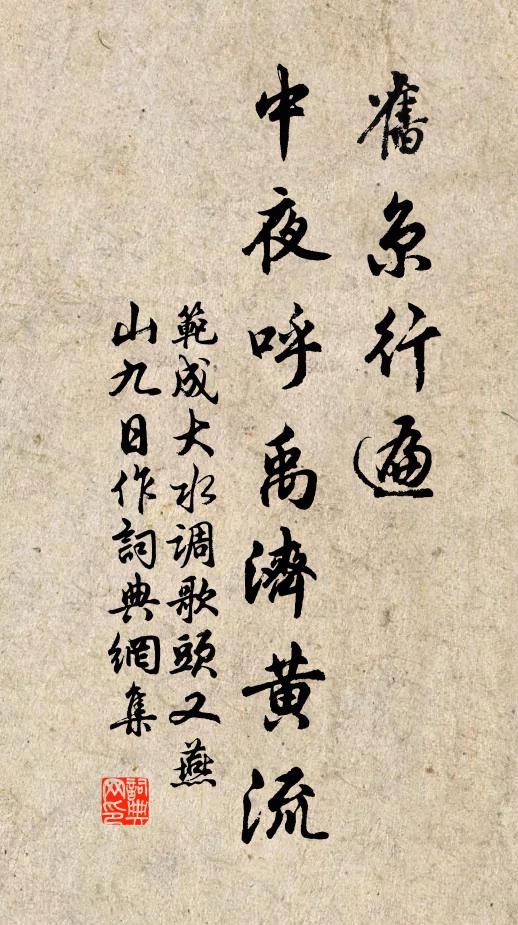 舊京行遍
中夜呼禹濟黄流
範成大水调歌頭又燕
山九日作詞典網集
詞典网印